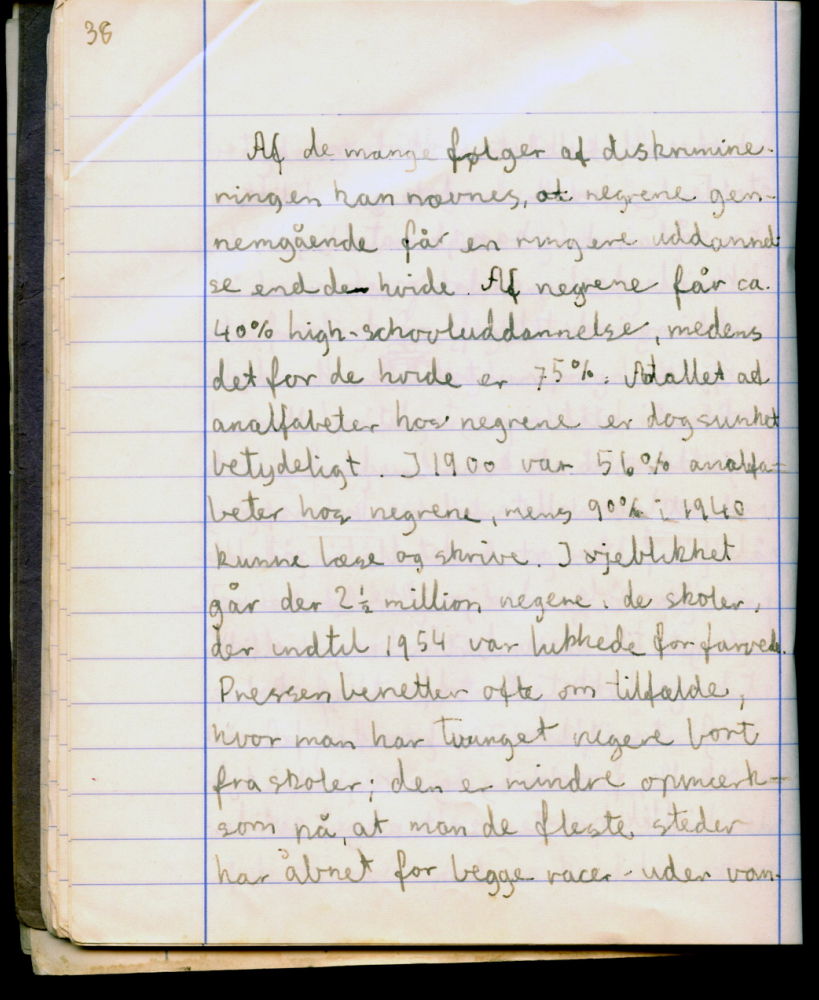 38
Af de mange følger af diskrimine-
ringen kan nævnes, at negrene gen-
nemgående får en ringere uddannel-
se end de hvide. Af negrene får ca.
40% high-schooluddannelse, medens
det for de hvide er 75%. Antallet af
analfabeter hos negrene er dog sunket
betydeligt. I 1900 var 56% analfa-
beter hos negrene, mens 90% i 1940
kunne læse og skrive. I øjeblikket
går der 2½ million negere i de skoler,
der indtil 1954 var lukkede for farvede.
Pressen beretter ofte om tilfælde,
hvor man har tvunget negere bort
fra skoler; den er mindre opmærk-
som på, at man de fleste steder
har åbnet for begge racer - uden van-